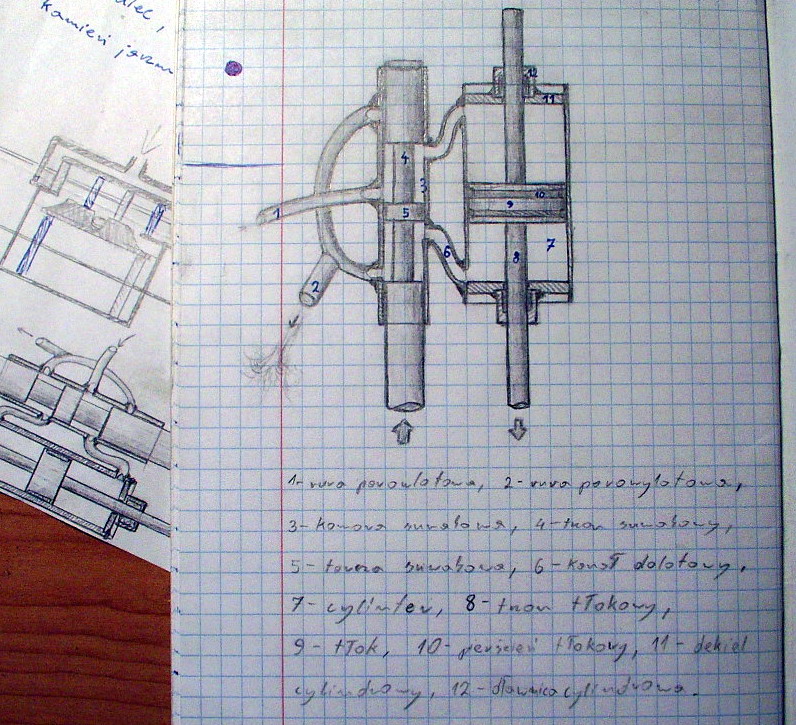 kamień
4
3
5
1
6
2
12
11
10
9
7
8
1- rura parowlotowa, 2- rura parowylotowa,
3- komora suwakowa, 4- trzon suwakowy,
5- tarcza suwakowa, 6- kanał dolotowy,
7- cylinder, 8- trzon tłokowy,
9- tłok, 10- pierścień tłokowy, 11- dekiel
cylindrowy, 12- dławnica cylindrowa.